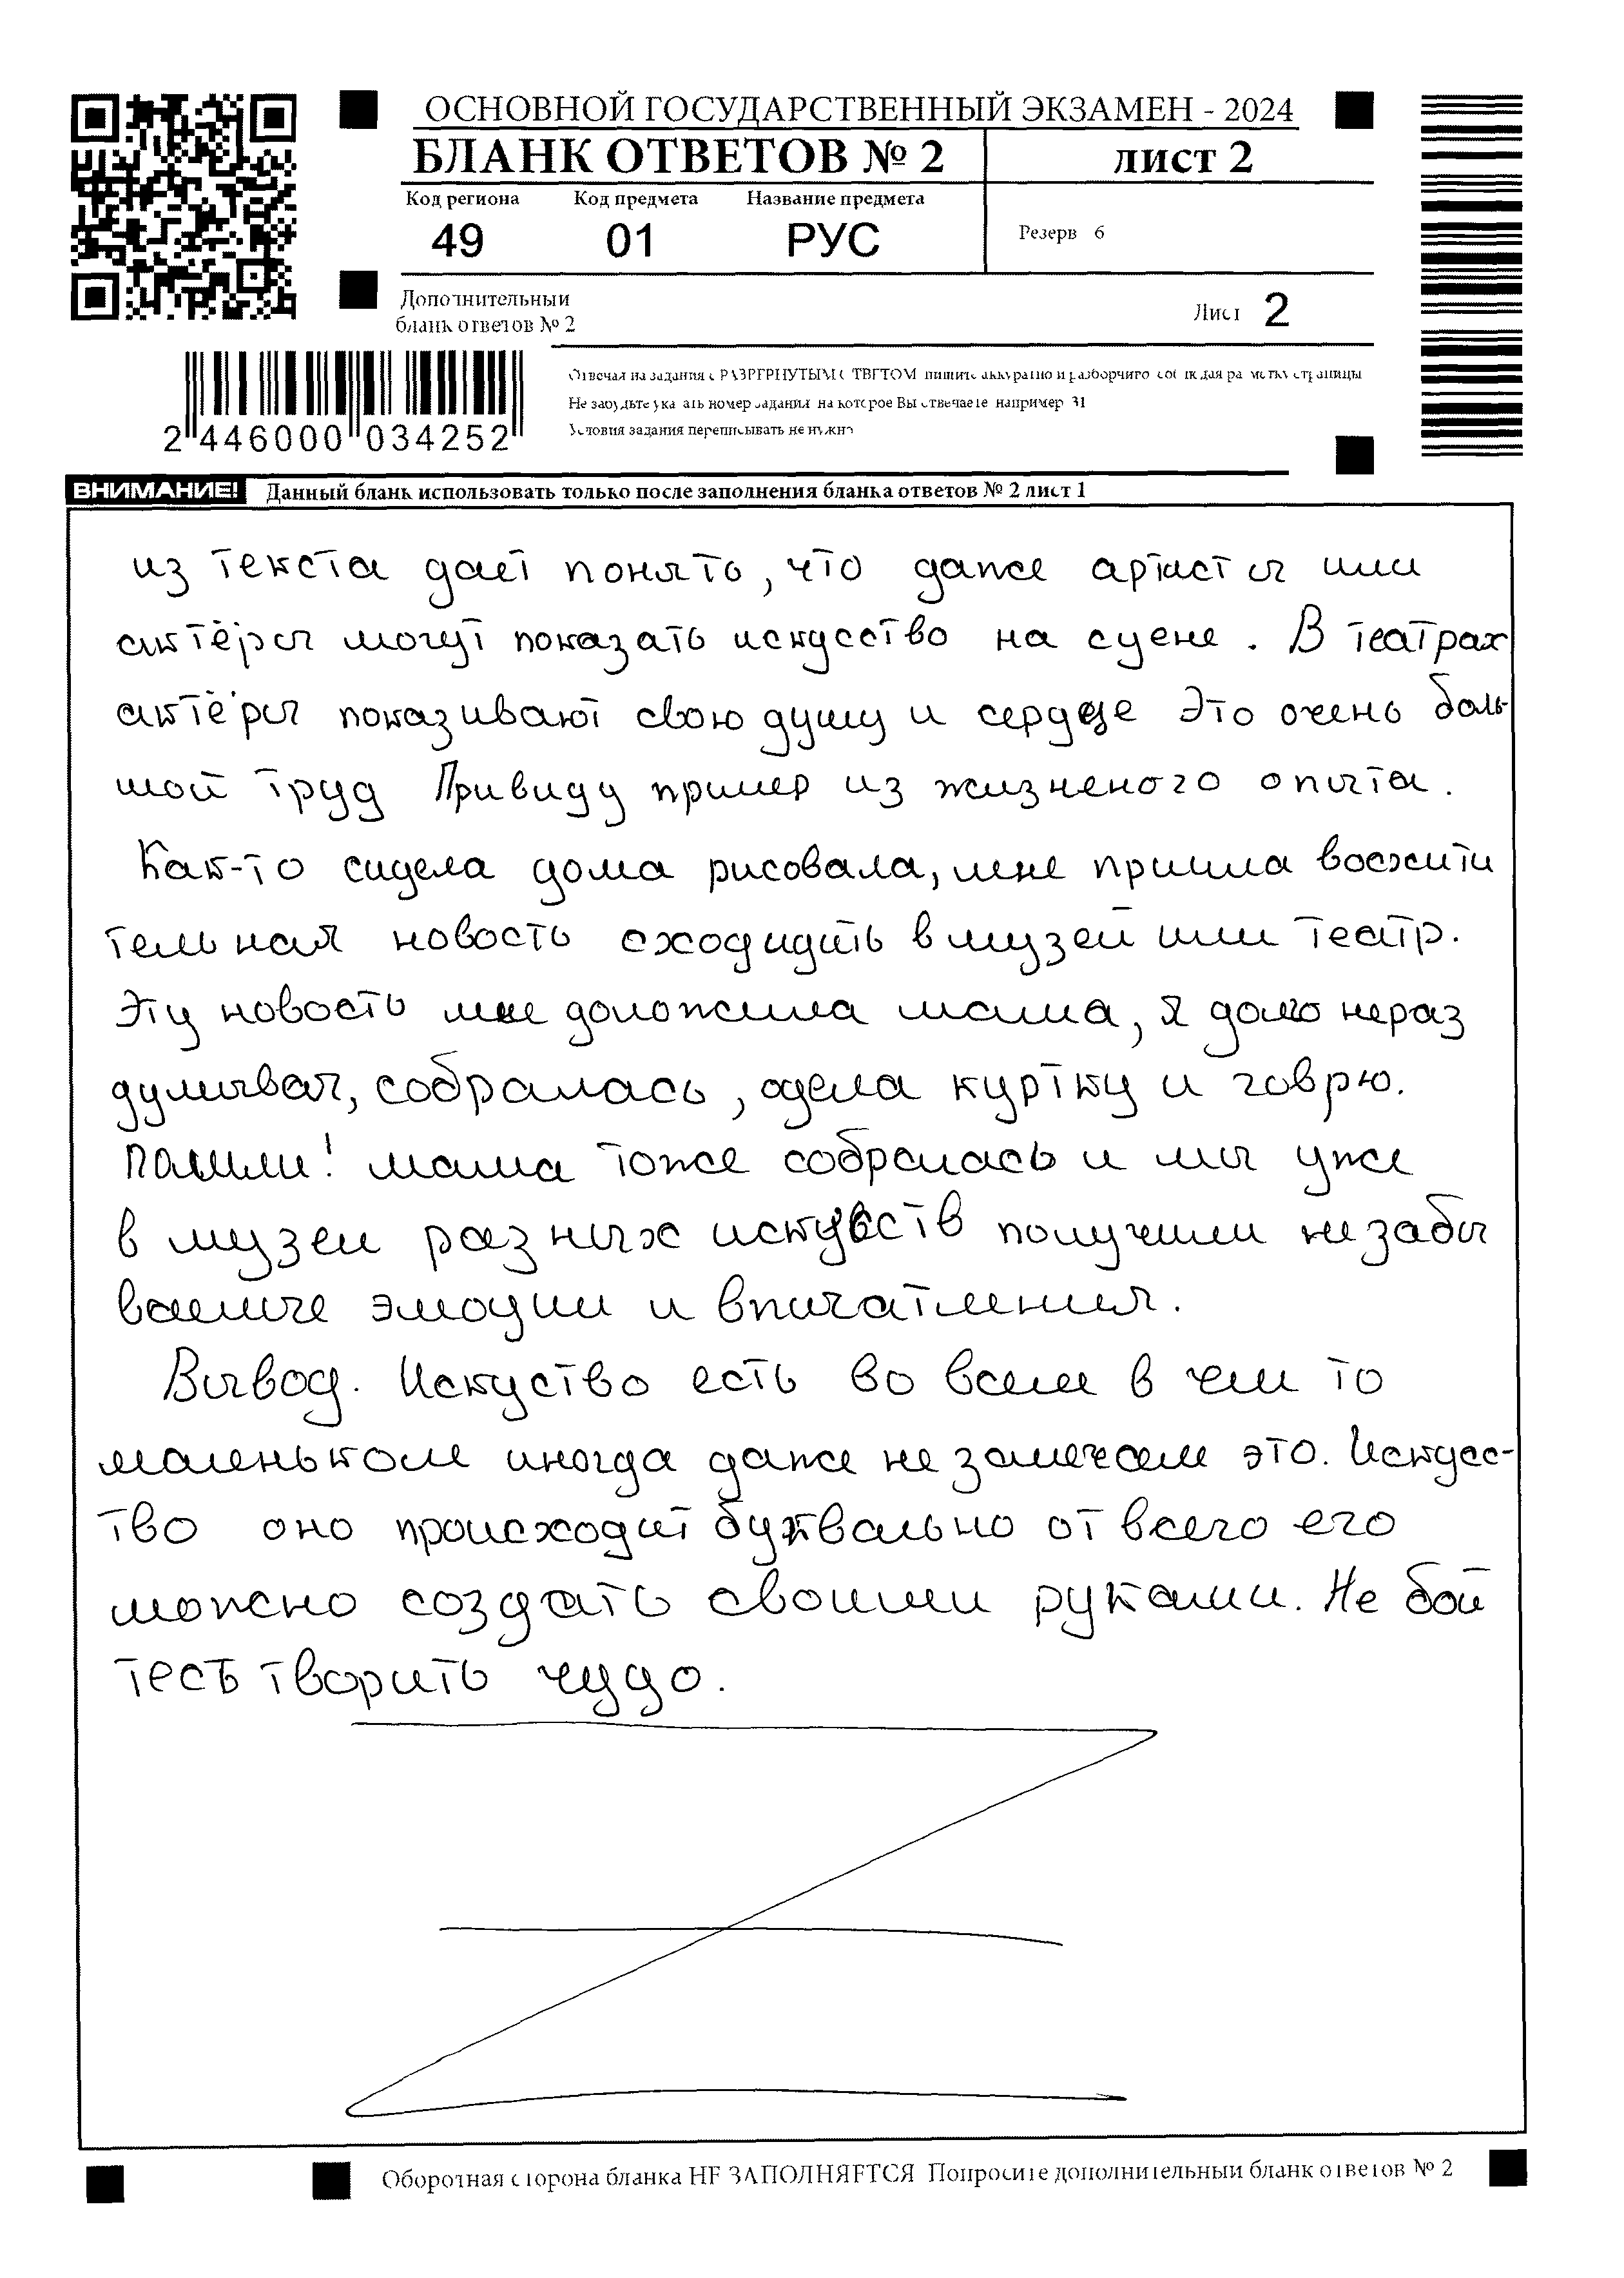 ОСНОВНОЙ ГОСУДАРСТВЕННЫЙ ЭКЗАМЕН - 2024
БЛАНК ОТВЕТОВ № 2 лист 2
Код региона Код предмета Название предмета
49 01 РУС Резерв 6
Дополнительный
бланк ответов № 2
Лист 2
Отвечая на задания с РАЗВЕРНУТЫМ ОТВЕТОМ пишите аккуратно и разборчиво соблюдая разметку страницы
Не забудьте указать номер задания на которое Вы отвечаете например 31
Условия задания переписывать не нужно
2 446000 034252
ВНИМАНИЕ! Данный бланк использовать только после заполнения бланка ответов № 2 лист 1
из текста даёт понять, что даже артисты или
актёры могут показать искусство на сцене. В театрах
актёры показивают свою душу и сердце Это очень боль-
шой труд Привиду пример из жизненого опыта.
Как-то сидела дома рисовала, мне пришла восхити
тельная новость сходидить в музей или театр.
Эту новость мне доложила мама, я долго нераз
думывая, собралась, одела куртку и говрю.
Пошли! мама тоже собралась и мы уже
в музеи разных искувств получили незабы
ваемые эмоции и впичатления.
Вывод. Искуство есть во всем в чем то
маленьком иногда даже не замечаем это. Искусс-
тво оно происходит буквально от всего его
можно создать своими руками. Не бой
тесь творить чудо.
Оборотная сторона бланка НЕ ЗАПОЛНЯЕТСЯ Попросите дополнительный бланк ответов № 2